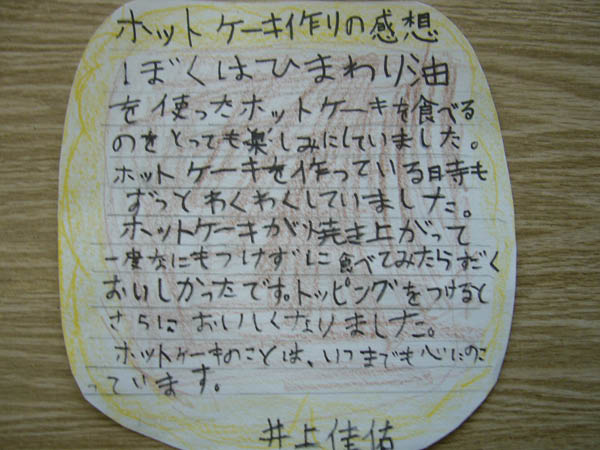 ホットケーキ作りの感想
ぼくはひまわり油
を使ったホットケーキを食べる
のをとっても楽しみにしていました。
ホットケーキを作っている時も
ずっとわくわくしていました。
ホットケーキがり焼き上がって
一度なにもつけずに食べてみたらすごく
おいしかったです。トッピングをつけると
さらにおいしくなりました。
ホットケーキのことは、いつまでも心にのこ
っています。
井上佳佑